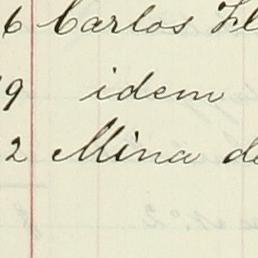 6 Carlos Fl
9 idem
2 Mina de